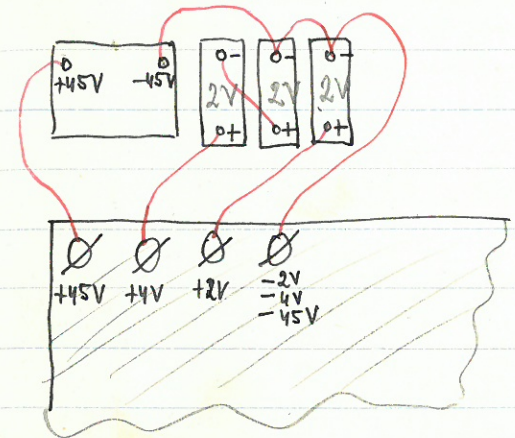 +45V -45V
- - -
2V 2V 2V
+ + +
+45V +4V +2V -2V
-4V
-45V